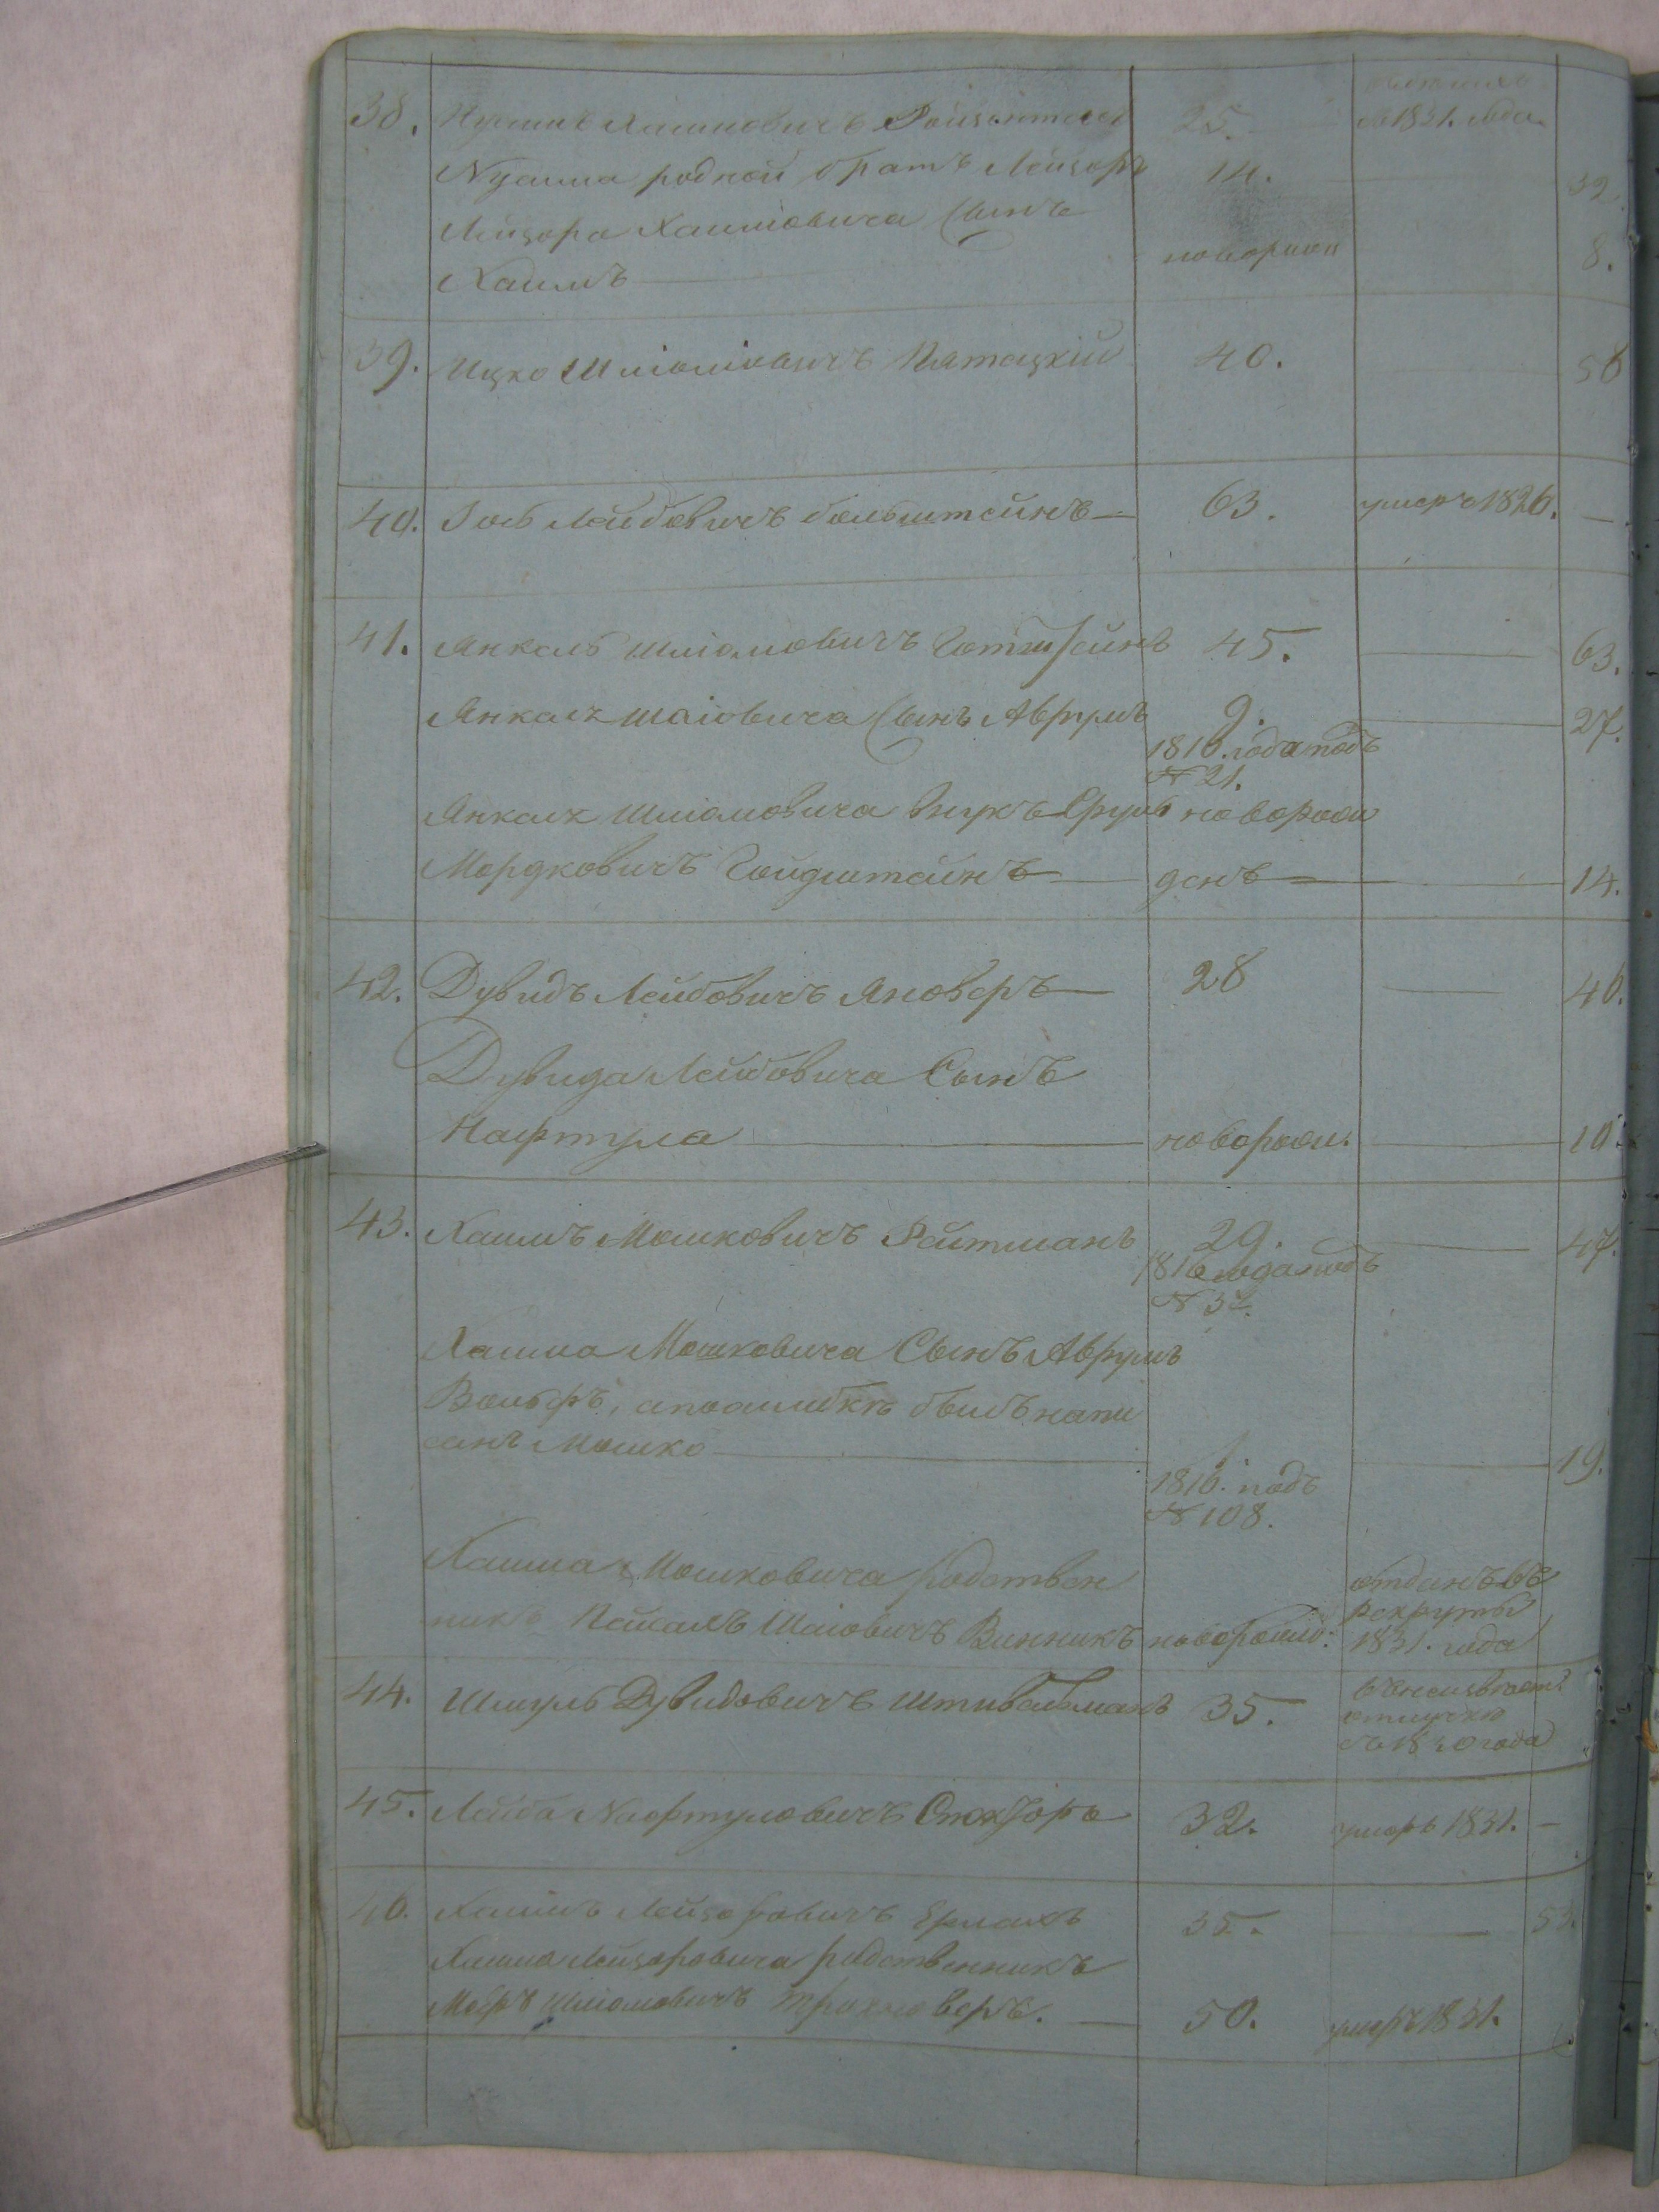 38. Хаимовичъ 25. съ 1831. года
родной братъ Лейзоръ 14. 32.
Лейзора Хаимовича Сынъ
Хаимъ новорожд 8.
39. Ицко Шліомовичъ Патоцкій 40. 58
40. Іось Лейбовичъ Гольдштейнъ 63. умеръ 1826. —
41. Янкель Шліомовичъ 45. 63.
Янкеля Шліомовича Сынъ Аврумъ 9. 27.
1816. года подъ
№ 21.
Янкеля Шліомовича внукъ Сруль новорож
Мордковичъ Гольдштейнъ денъ 14.
42. Дувидъ Лейбовичъ Яноверъ 28 46.
Дувида Лейбовича Сынъ
Нафтула новорож. 10.
43. Хаимъ Мошковичъ Ройтманъ 29. 47.
1816 года подъ
№ 32.
Хаима Мошковича Сынъ Аврумъ
Вольфъ, а по ошибкѣ былъ напи
санъ Мошко 1. 19.
1816. подъ
№ 108.
Хаима Мошковича родствен отданъ въ
никъ Пейсахъ Шаіовичъ Винникъ новорожд: рекруты
1831. года
44. Шмуль Дувидовичъ Штивельманъ 35. въ неизвѣст:
отлучкѣ
съ 1830 года
45. Лейба Нафтуловичъ 32. умеръ 1831. —
46. Хаимъ Лейзоровичъ Ермахъ 35. 53.
Хаима Лейзоровича родственникъ
Мееръ Шліомовичъ 50. умеръ 1831.